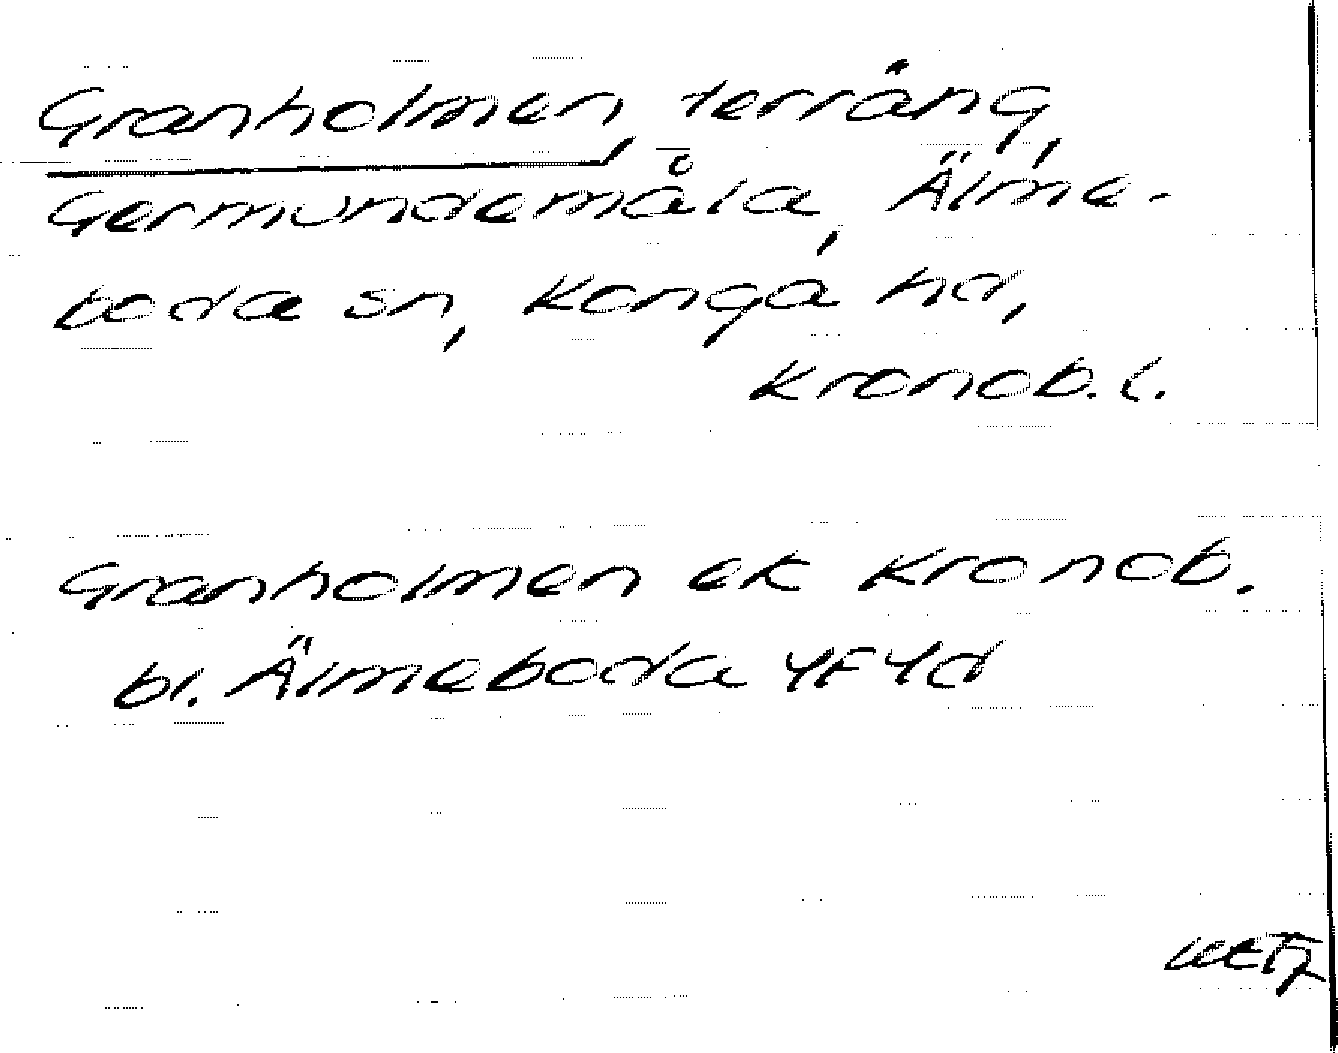 Granholmen, terräng,
Germundemåla, Älme-
boda sn, Konga hd,
Kronob. l.
Granholmen ek Kronob.
bl. Älmeboda 4F4d